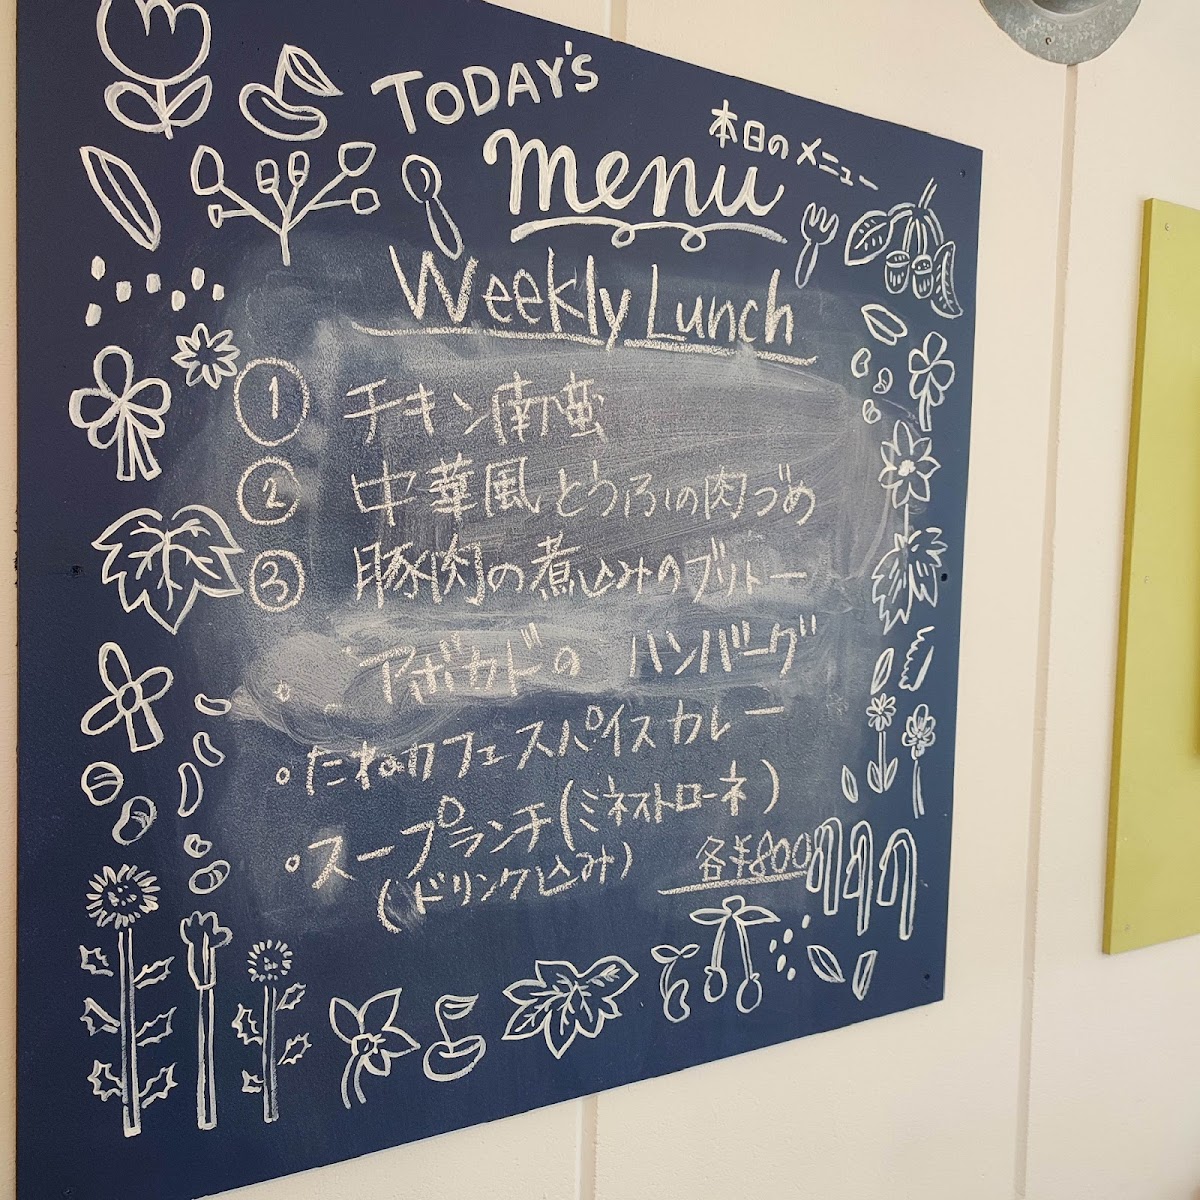 TODAY'S
本日のメニュー
menu
Weekly Lunch
① チキン南蛮
② 中華風とうふの肉づめ
③ 豚肉の煮込みのブリトー
。アボカドの ハンバーグ
。たねのカフェスパイスカレー
。スープランチ(ミネストローネ)
(ドリンク込み) 各¥800